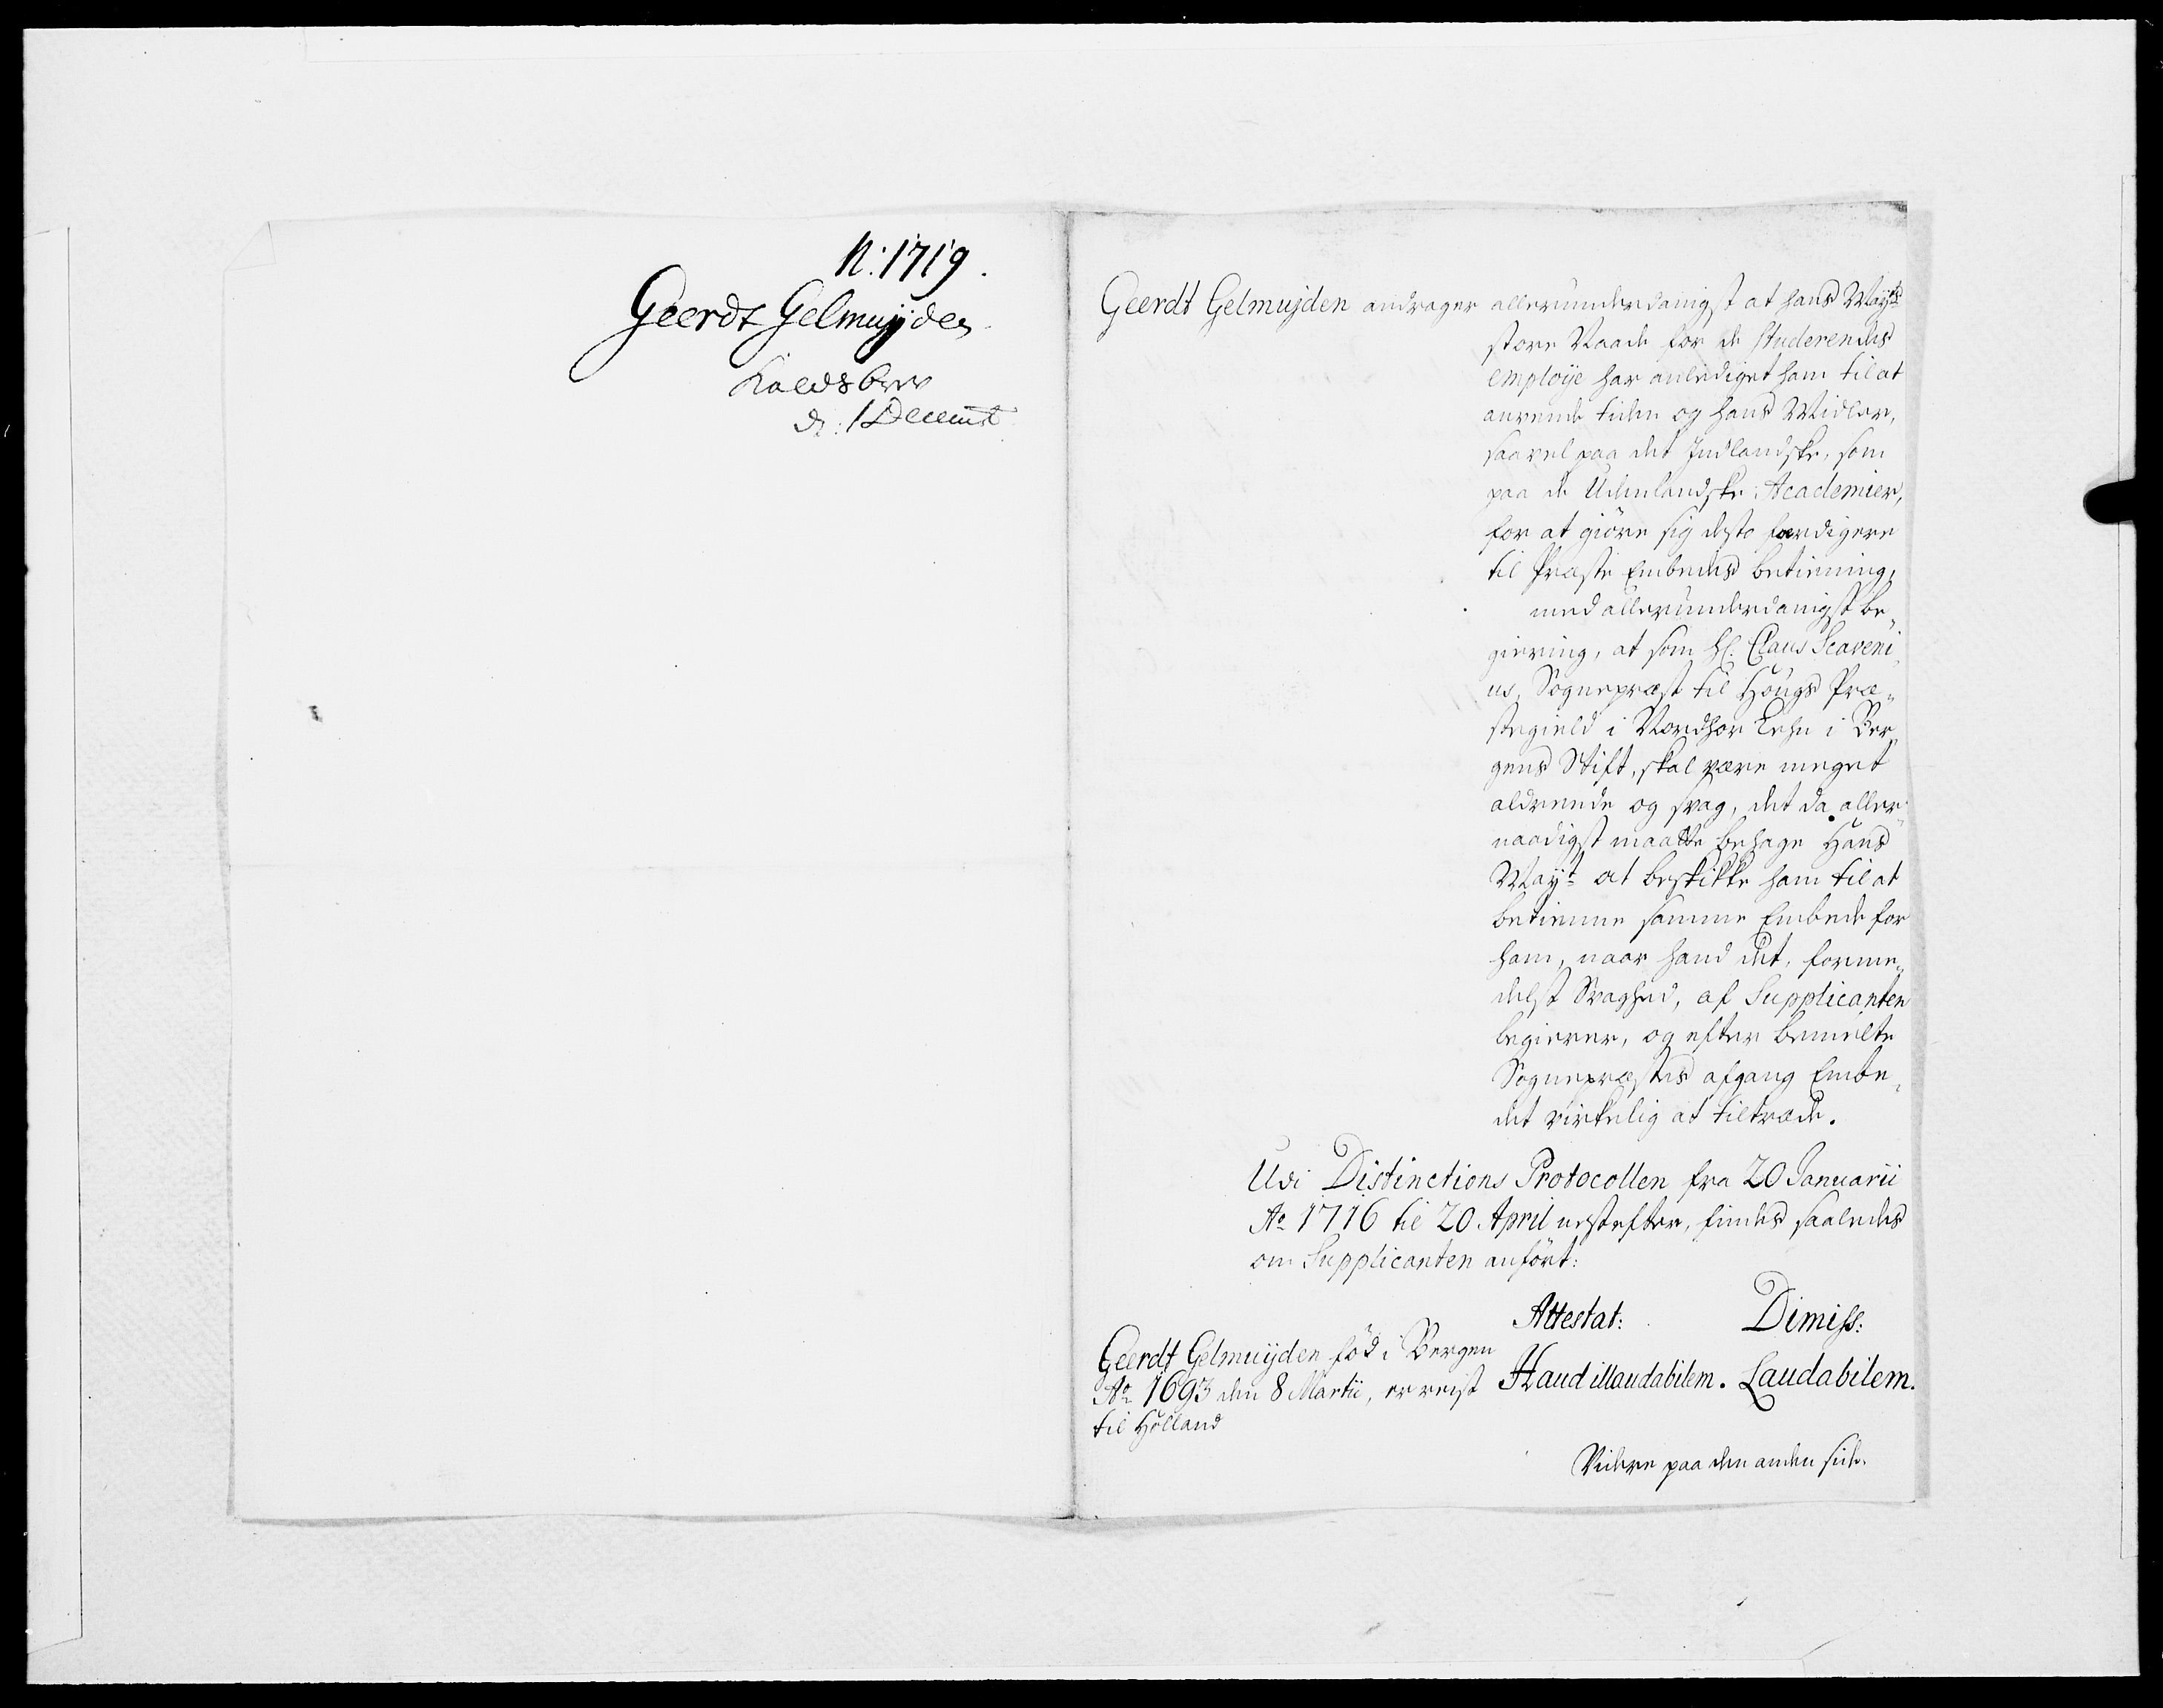 N: 1719.
Geerdt Gelmuyden
Kaldsbrev
d: 1 Decembr
Geerdt Gelmuyden andrager allerunderdanigst at hans Mayts
store Naade for de Studerendes
employe har anlediget ham til at
anvende tiden og hans Midler,
saavel paa det Indlandske, som
paa de Udenlandske Academier,
for at giöre sig desto færdigere
til Præste Embedes betienning,
med allerunderdanigst be„
giering, at som Hl. Claus Scaveni„
us, Sognepræst til Hougs Præ„
stegield i Nordhor Lehn i Ber„
gens Stift, skal være meget
aldrende og svag, det da aller„
naadigst maatte behage Hans
Mayt at beskikke ham til at
betienne samme Embede for
ham, naar hand det, forme„
delst Svaghed, af Supplicanten
begierer, og efter bemelte
Sognepræstes afgang Embe„
det virkelig at tiltræde.
Udi Distinctions Protocollen fra 20 Januarii
Ao 1716 til 20. April nestefter, findes saaledes
om Supplicanten anfört:
Attestat: Dimiss:
Geerdt Gelmuyden föd i Bergen
Ao 1693 den 8 Martii, er reist
til Holland
Haud illaudabilem. Laudabilem.
Videre paa den anden side.